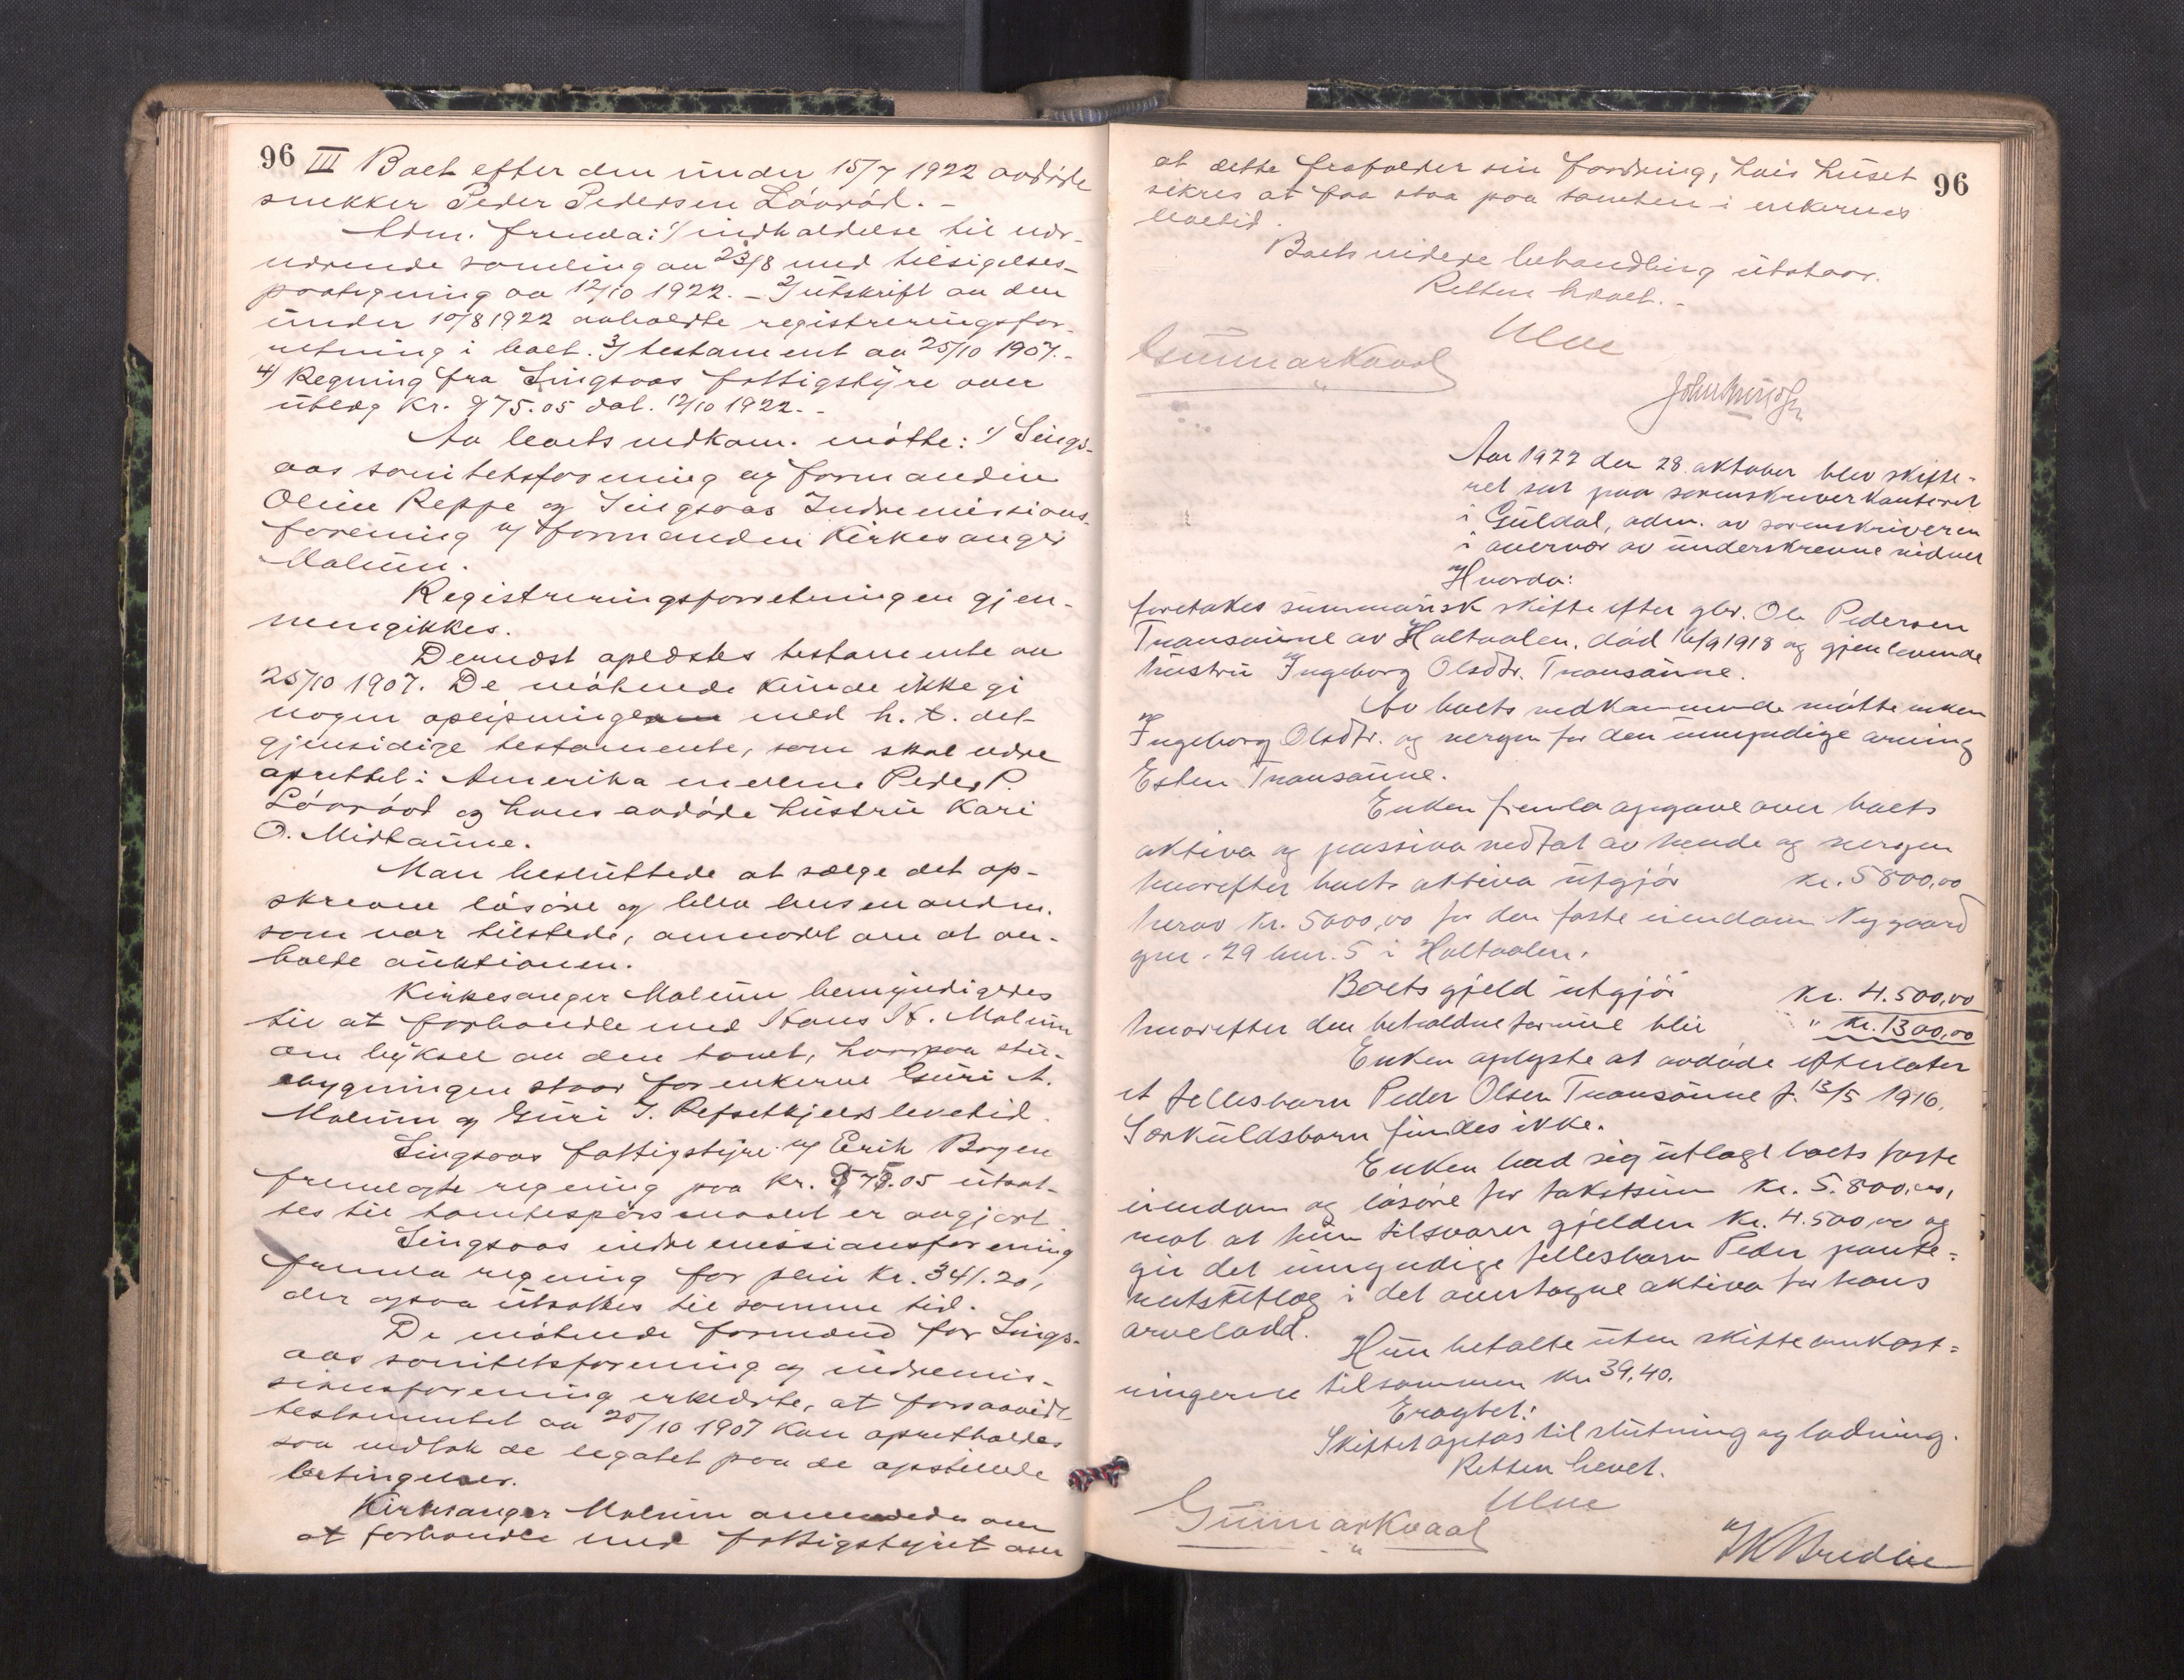 96
III Boet efter den under 15/7 1922 avdøde
snekker Peder Pedersen Lövröd. -
Adm. fremla: 1/ indkaldelse til nær-
værende samling av 23/8 med tilsigelses-
paategning av 12/10 1922. - 2/ utskrift av den
under 10/8 1922 avholdte registreringsfor-
retning i boet. 3/ testament av 25/10 1907. -
4/ Regning fra Singsaas fattigstyre over
utlæg kr. 975.05 dat. 12/10 1922. -
Av boets vedkom. mötte: 1/ Sings-
aas sanitetsforening ved formanden
Oline Reppe og Singsaas Indremissions-
forening ved formanden Kirkesanger
Malum.
Registreringsforretningen gjen-
nemgikkes.
Dernæst oplæstes testamente av
25/10 1907. De mötende kunde ikke gi
nogen oplysninger med h. t. det
gjensidige testamente, som skal være
oprettet i Amerika mellem Peder P.
Lövröd og hans avdöde hustru Kari
O. Midtaune.
Man besluttede at sælge det op-
skrevne lösöre og blev lensmanden
som var tilstede, anmodet om at av-
holde auktionen.
Kirkesanger Malum bemyndigedes
til at forhandle med Hans H. Malum
om byksel av den tomt, hvorpaa stu-
ebygningen staar for enkerne Guri A.
Malum og Guri J. Refsetkjelds levetid.
Singsaas fattigstyre ved Erik Bogen
fremlagte regning paa kr. 975.05 utsat-
tes til tomtespörsmaalet er avgjort.
Singsaas indremissionsforening
fremla regning for pleie kr. 341.20,
der ogsaa utsattes til samme tid.
De mötende formænd for Sings-
aas sanitetsforening og indremis-
sionsforening erklærte, at forsaavidt
testamentet av 25/10 1907 kan opretholdes
saa vedtok de legatet paa de opstillede
betingelser.
Kirkesanger Malum anmodedes om
at forhandle med fattigstyret om
96
at dette frafalder sin fordring, hvis huset
sikres at faa staa paa tomten i enkernes
levetid.
Boets videre behandling utstaar.
Retten hævet. -
Ulve
Gunnar Kvaal
Aar 1922 den 28. oktober blev skifte-
ret sat paa sorenskriverkontoret
i Guldal, adm. av sorenskriveren
i overvær av underskrevne vidner
Hvorda:
foretokes summarisk skifte efter gbr. Ole Pedersen
Transaune av Haltdalen, död 16/9 1918 og gjenlevende
hustru Ingeborg Olsdtr. Transaune.
Av boets vedkommende mötte enken
Ingeborg Olsdtr. og vergen for den umyndige arving
Esten Transaune.
Enken fremla opgave over boets
aktiva og passiva vedtat av hende og vergen
hvorefter boets aktiva utgjör kr. 5800,00
herav kr. 5000,00 for den faste eiendom Nygaard
gnr. 29 bnr. 5 i Haltdalen.
Boets gjeld utgjör kr. 4.500,00
hvorefter den beholdne formue blir " kr. 1300,00
Enken oplyste at avdöde efterlater
et fellesbarn Peder Olsen Transaune f. 13/5 1916.
Særkuldsbarn findes ikke.
Enken bad sig utlagt boets faste
eiendom og lösöre for takstsum kr. 5.800,00,
mot at hun tilsvarer gjelden kr. 4.500,00 og
gir det umyndige fellesbarn Peder pante-
retsutlæg i det overtagne aktiva for hans
arvelodd.
Hun betalte uten skifteomkost-
ningerne tilsammen kr. 39,40.
Eragtet:
Skiftet optas til slutning og lodning.
Retten hevet.
Ulve
Gunnar Kvaal